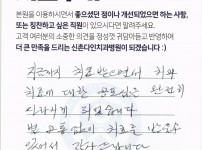 본원을 이용하시면서 좋으셨던 점이나 개선되었으면 하는 사항,
또는 칭찬하고 싶은 직원이 있으시다면 말씀해 주세요.
고객 여러분의 소중한 의견을 정성껏 귀담아듣고 반영하여
더 큰 만족을 드리는 신촌다인치과병원이 되겠습니다 :)
지금까지 치료 받으면서 치과
치료에 대한 공포심은 완전히
사라지게 되었습니다
별 고통없이 치료를 받을수
있어서 감사합니다